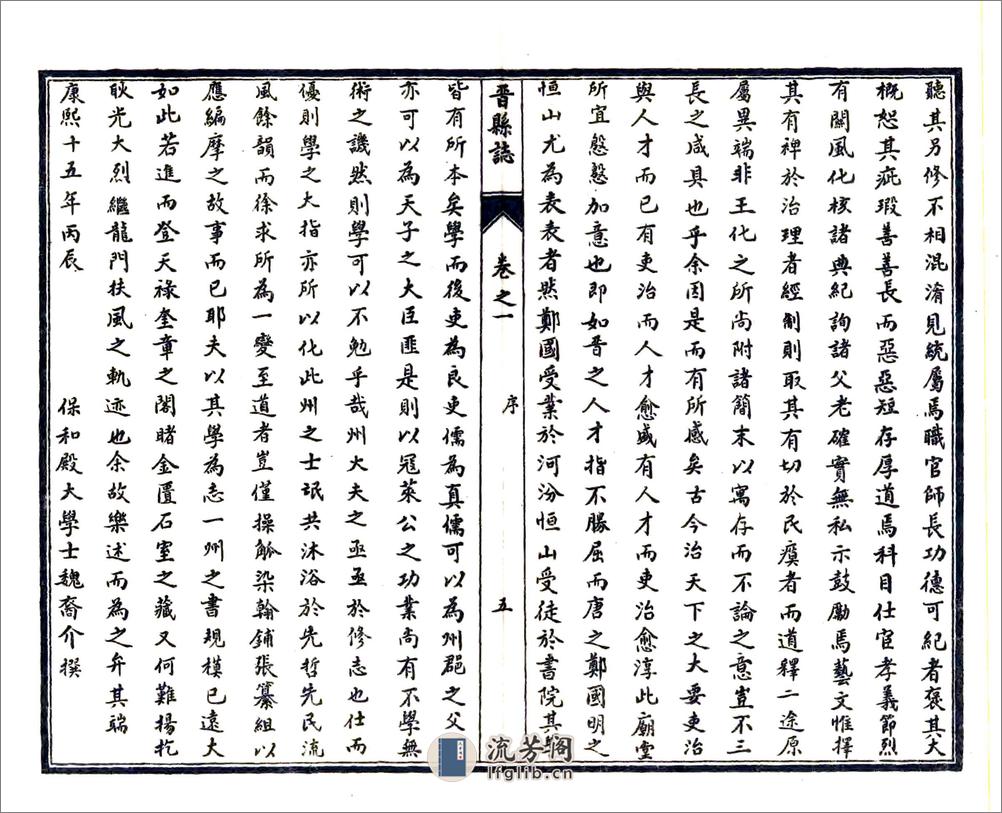 聽其另修不相混淆見統屬焉職官師長功德可紀者褒其大
概恕其疵瑕善善長而惡惡短存厚道焉科目仕宦孝義節烈
有關風化核諸典紀詢諸父老確實無私示鼓勵焉藝文惟擇
其有裨於治理者經制則取其有切於民瘼者而道釋二途原
屬異端非王化之所尚附諸簡末以寓存而不論之意豈不三
長之咸具也乎余因是而有所感矣古今治天下之大要吏治
與人才而已有吏治而人才愈盛有人才而吏治愈淳此廟堂
所宜慇慇加意也即如晉之人才指不勝屈而唐之鄭國明之
恒山尤為表表者然鄭國受業於河汾恒山受徒於書院其
晉縣誌
卷之一
序
五
皆有所本矣學而後吏為良吏儒為真儒可以為州郡之父
亦可以為天子之大臣匪是則以冦萊公之功業尚有不學無
術之譏然則學可以不勉乎哉州大夫之亟亟於修志也仕而
優則學之大指亦所以化此州之士氓共沐浴於先哲先民流
風餘韻而徐求所為一變至道者豈僅操觚染翰鋪張纂組以
應編摩之故事而已耶夫以其學為志一州之書規模已遠大
如此若進而登天祿奎章之閣睹金匱石室之藏又何難揚扢
耿光大烈繼龍門扶風之軌迹也余故樂述而為之弁其端
康熙十五年丙辰
保和殿大學士魏裔介撰
流芳阁
lfglib.cn